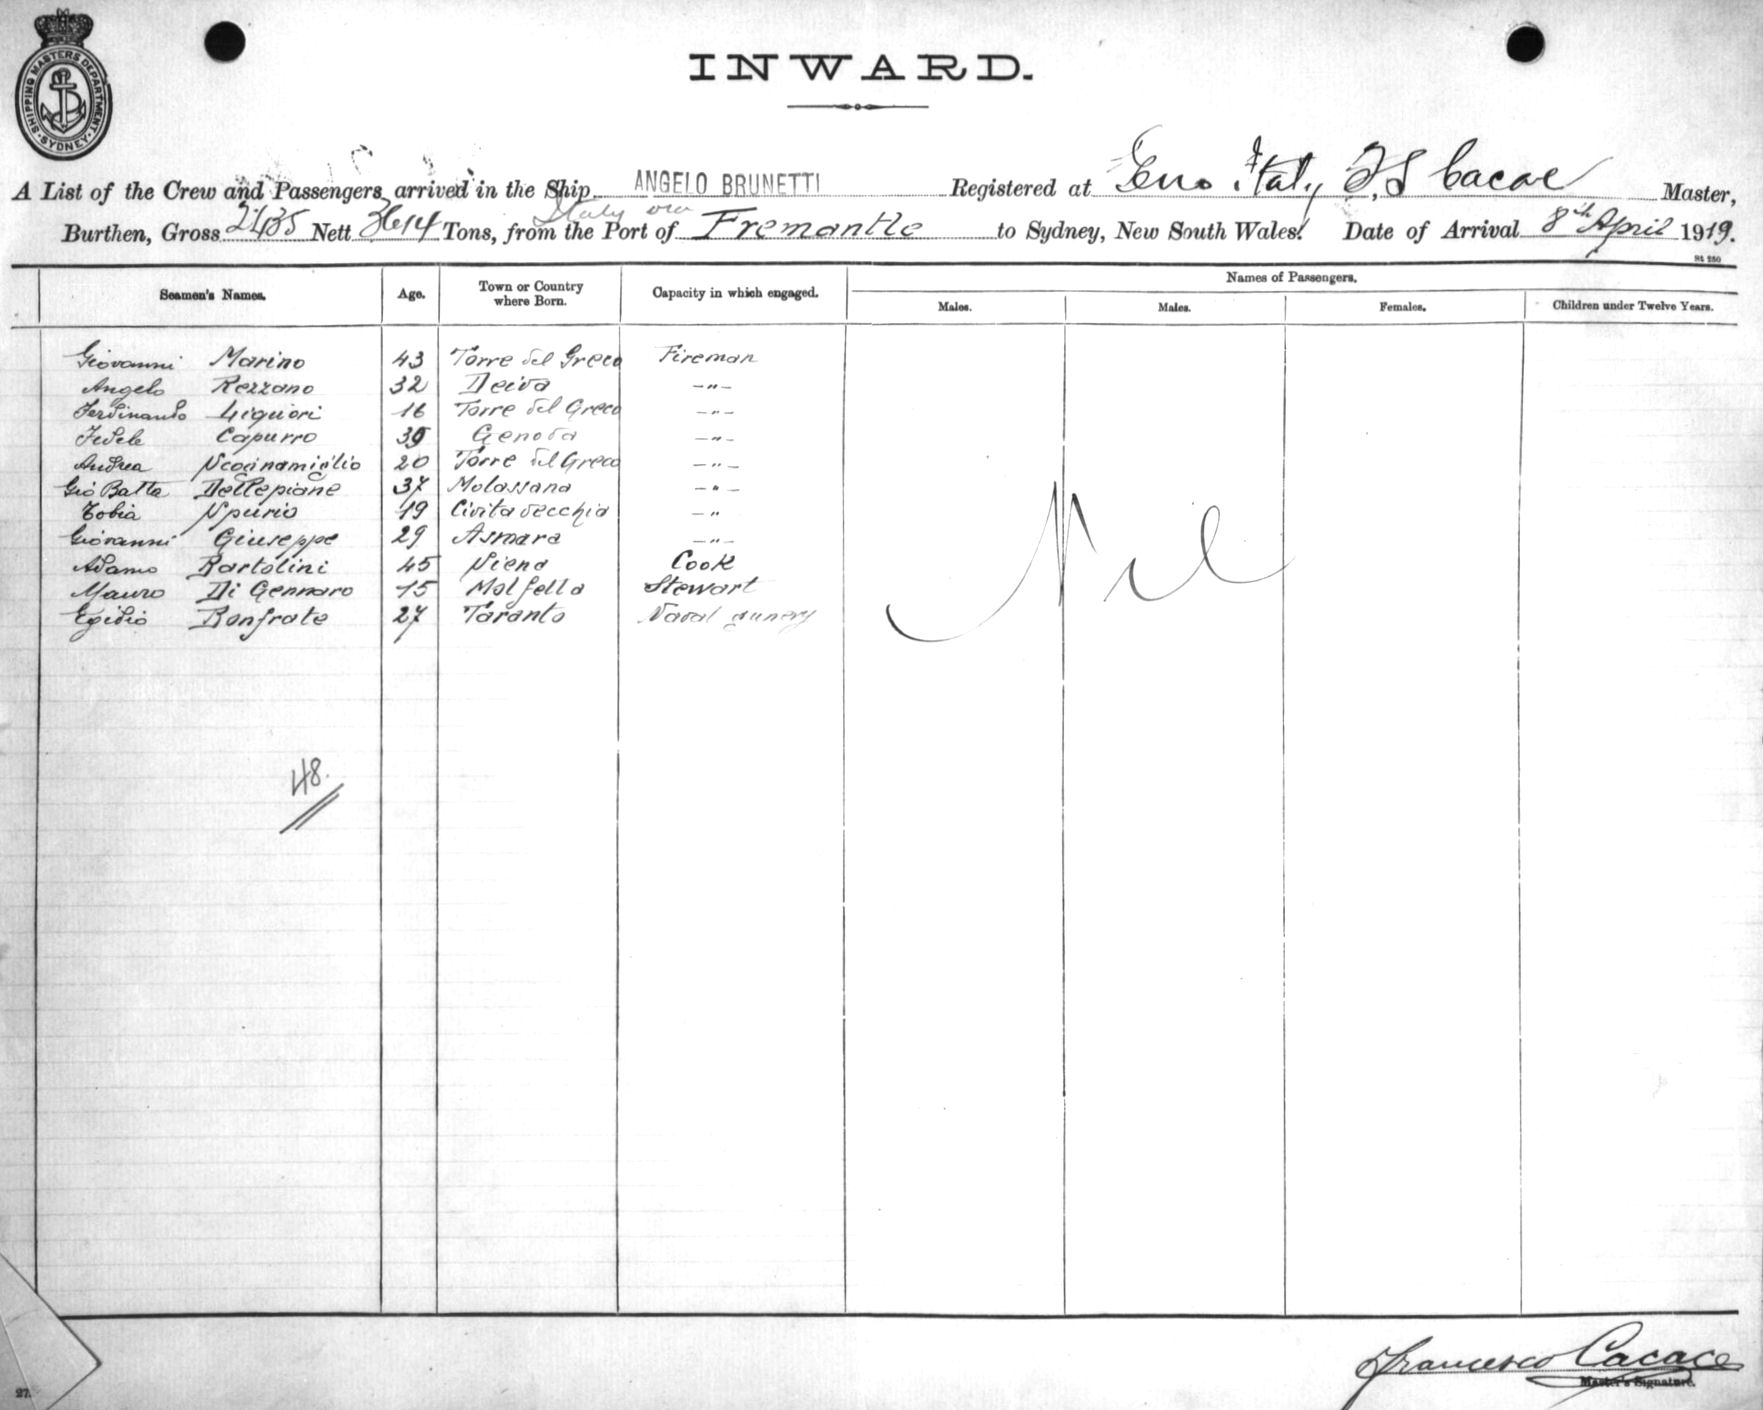 SHIPPING MASTERS DEPARTMENT.
SYDNEY
INWARD.
A List of the Crew and Passengers arrived in the Ship ANGELO BRUNETTI Registered at Italy Cacace Master,
Italy via
Burthen, Gross Nett 3614 Tons, from the Port of Fremantle to Sydney, New South Wales. Date of Arrival 8th April 1919.
St 250
Seamen's Names. Age. Town or Country where Born. Capacity in which engaged. Names of Passengers.
Males. Males. Females. Children under Twelve Years.
Giovanni Marino 43 Torre del Greco Fireman
Angelo Rezzano 32 Deiva -"-
Ferdinando Liguori 16 Torre del Greco -"-
Fedele Capurro 39 Genova -"-
Andrea Scognamiglio 20 Torre del Greco -"-
Gio Batta Dellepiane 37 Molassana -"-
Tobia Spurio 19 Civitavecchia -"
Giovanni Giuseppe 29 Asmara -"-
Adamo Bartolini 45 Siena Cook
Mauro Di Gennaro 15 Molfetta Stewart
Egidio Bonfrate 27 Taranto Naval gunery
Nil
48.
Francesco Cacace
Master's Signature.
27.